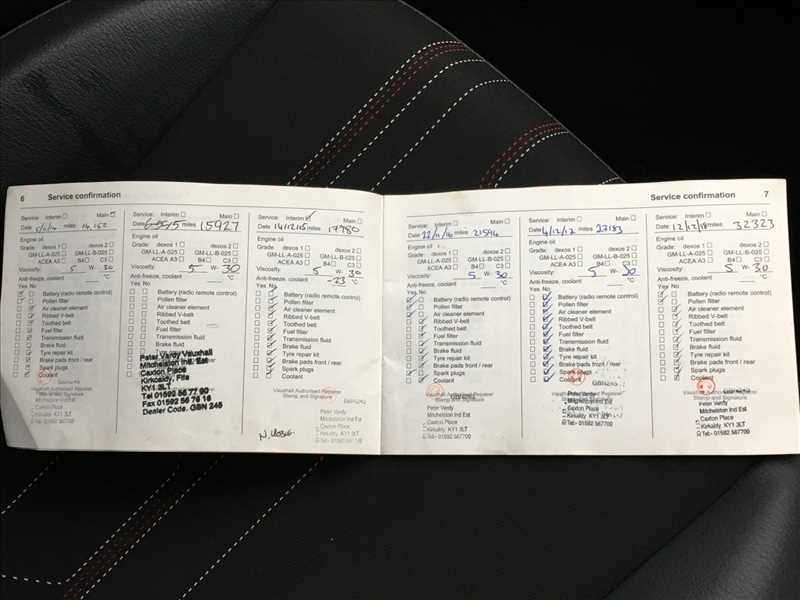 6 Service confirmation
Service: Interim Main
Date miles 14,162
Engine oil
Grade: dexos 1 dexos 2
GM-LL-A-025 GM-LL-B-025
ACEA A3 B4 C3
Viscosity: 5 W- 30
Anti-freeze, coolant °C
Yes No
Battery (radio remote control)
Pollen filter
Air cleaner element
Ribbed V-belt
Toothed belt
Fuel filter
Transmission fluid
Brake fluid
Tyre repair kit
Brake pads front / rear
Spark plugs
Coolant
Mitchelston Ind Est
Caxton Place
Kirkcaldy KY1 3LT
Tel:- 01592 567700
Service: Interim Main
Date miles 15927
Engine oil
Grade: dexos 1 dexos 2
GM-LL-A-025 GM-LL-B-025
ACEA A3 B4 C3
Viscosity: 5 W- 30
Anti-freeze, coolant °C
Yes No
Battery (radio remote control)
Pollen filter
Air cleaner element
Ribbed V-belt
Toothed belt
Fuel filter
Transmission fluid
Brake fluid
Peter Vardy Vauxhall
Mitchelston Ind. Est
Caxton Place
Kirkcaldy, Fife
KY1 3LT
Tel 01592 56 77 00
Fax 01592 56 76 16
Dealer Code. GBN 245
Service: Interim Main
Date 14/12/15 miles 17980
Engine oil
Grade: dexos 1 dexos 2
GM-LL-A-025 GM-LL-B-025
ACEA A3 B4 C3
Viscosity: 5 W- 30
Anti-freeze, coolant -23 °C
Yes No
Battery (radio remote control)
Pollen filter
Air cleaner element
Ribbed V-belt
Toothed belt
Fuel filter
Transmission fluid
Brake fluid
Tyre repair kit
Brake pads front / rear
Spark plugs
Coolant
Vauxhall Authorised Repairer
Stamp and Signature
Peter Vardy
Mitchelston Ind Est
Caxton Place
Kirkcaldy KY1 3LT
Tel:- 01592 567700
Service confirmation 7
Service: Interim Main
Date 22/11/16 miles 21594
Engine oil
Grade: dexos 1 dexos 2
GM-LL-A-025 GM-LL-B-025
ACEA A3 B4 C3
Viscosity: 5 W- 30
Anti-freeze, coolant °C
Yes No
Battery (radio remote control)
Pollen filter
Air cleaner element
Ribbed V-belt
Toothed belt
Fuel filter
Transmission fluid
Brake fluid
Tyre repair kit
Brake pads front / rear
Spark plugs
Coolant
Vauxhall Authorised Repairer
Stamp and Signature
Peter Vardy
Mitchelston Ind Est
Caxton Place
Kirkcaldy KY1 3LT
Tel:- 01592 567700
Service: Interim Main
Date 4/12/17 miles 27183
Engine oil
Grade: dexos 1 dexos 2
GM-LL-A-025 GM-LL-B-025
ACEA A3 B4 C3
Viscosity: 5 W- 30
Anti-freeze, coolant °C
Yes No
Battery (radio remote control)
Pollen filter
Air cleaner element
Ribbed V-belt
Toothed belt
Fuel filter
Transmission fluid
Brake fluid
Tyre repair kit
Brake pads front / rear
Spark plugs
Coolant
Vauxhall Authorised Repairer
Peter Vardy
Mitchelston Ind Est
Caxton Place
Kirkcaldy KY1 3LT
Tel:- 01592 567700
Service: Interim Main
Date 12/12/18 miles 32323
Engine oil
Grade: dexos 1 dexos 2
GM-LL-A-025 GM-LL-B-025
ACEA A3 B4 C3
Viscosity: 5 W- 30
Anti-freeze, coolant °C
Yes No
Battery (radio remote control)
Pollen filter
Air cleaner element
Ribbed V-belt
Toothed belt
Fuel filter
Transmission fluid
Brake fluid
Tyre repair kit
Brake pads front / rear
Spark plugs
Coolant
Vauxhall Authorised Repairer
Stamp and Signature
Peter Vardy
Mitchelston Ind Est
Caxton Place
Kirkcaldy KY1 3LT
Tel:- 01592 567700